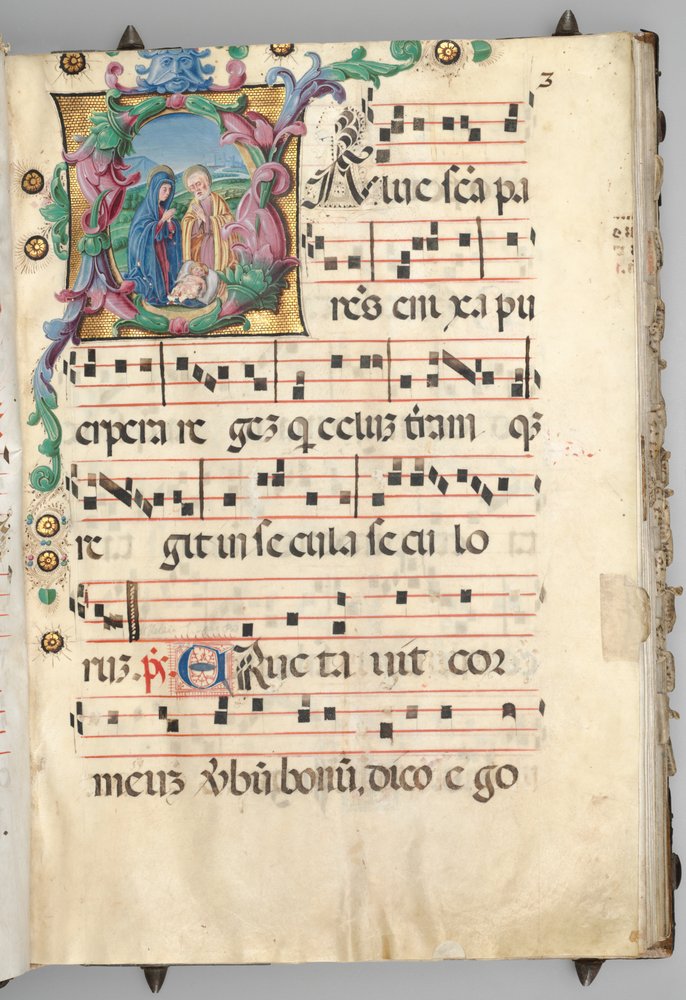 3
SAlue sc̄a pa
rēs eni xa pu
erpera re gez q̄ celuz t̄ram qz
re git in se cula se cu lo
ruz. ps. ERuc ta uit cor
meuz v̄bū bonū, dico e go